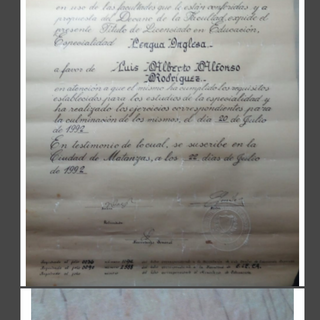 en uso de las facultades que le están conferidas, y a
propuesta del Decano de la Facultad, expide el
presente Título de Licenciado en Educación,
Especialidad Lengua Inglesa
a favor de Luis Alberto Alfonso
Rodríguez
en atención a que el mismo ha cumplido los requisitos
establecidos para los estudios de la especialidad y
ha realizado los ejercicios correspondientes para
la culminación de los mismos, el día 22 de Julio
de 1992
En testimonio de lo cual, se suscribe en la
Ciudad de Matanzas, a los 22 días de Julio
de 1992
Registrado al folio
Registrado al folio
Registrado al folio